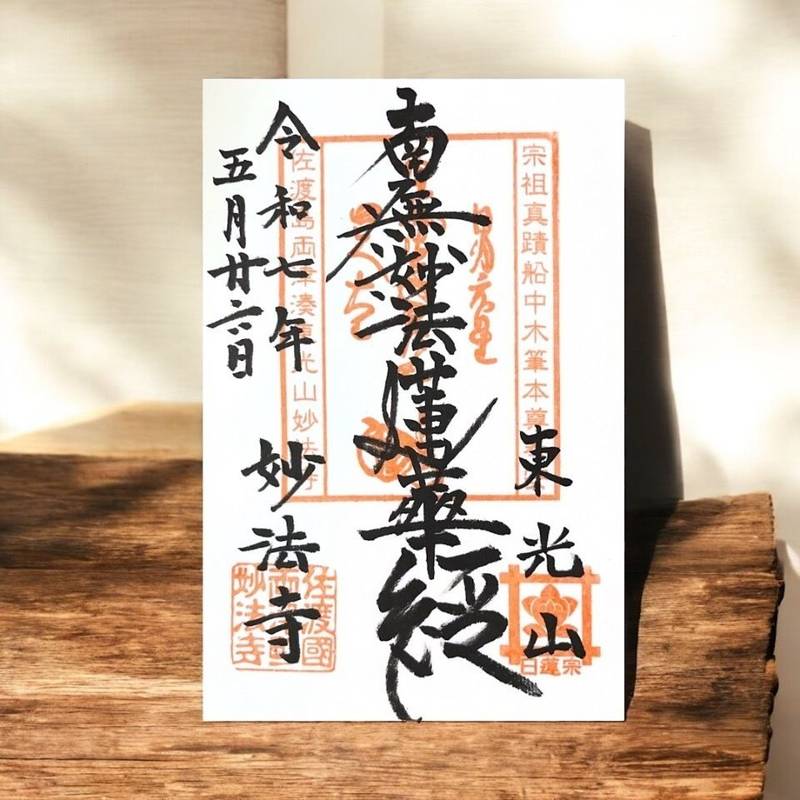 宗祖真蹟船中木筆本尊
東光山
日蓮宗
南無妙法蓮華経
佐渡島両津湊東光山妙法寺
令和七年
五月廿六日
妙法寺
佐渡國
妙法寺